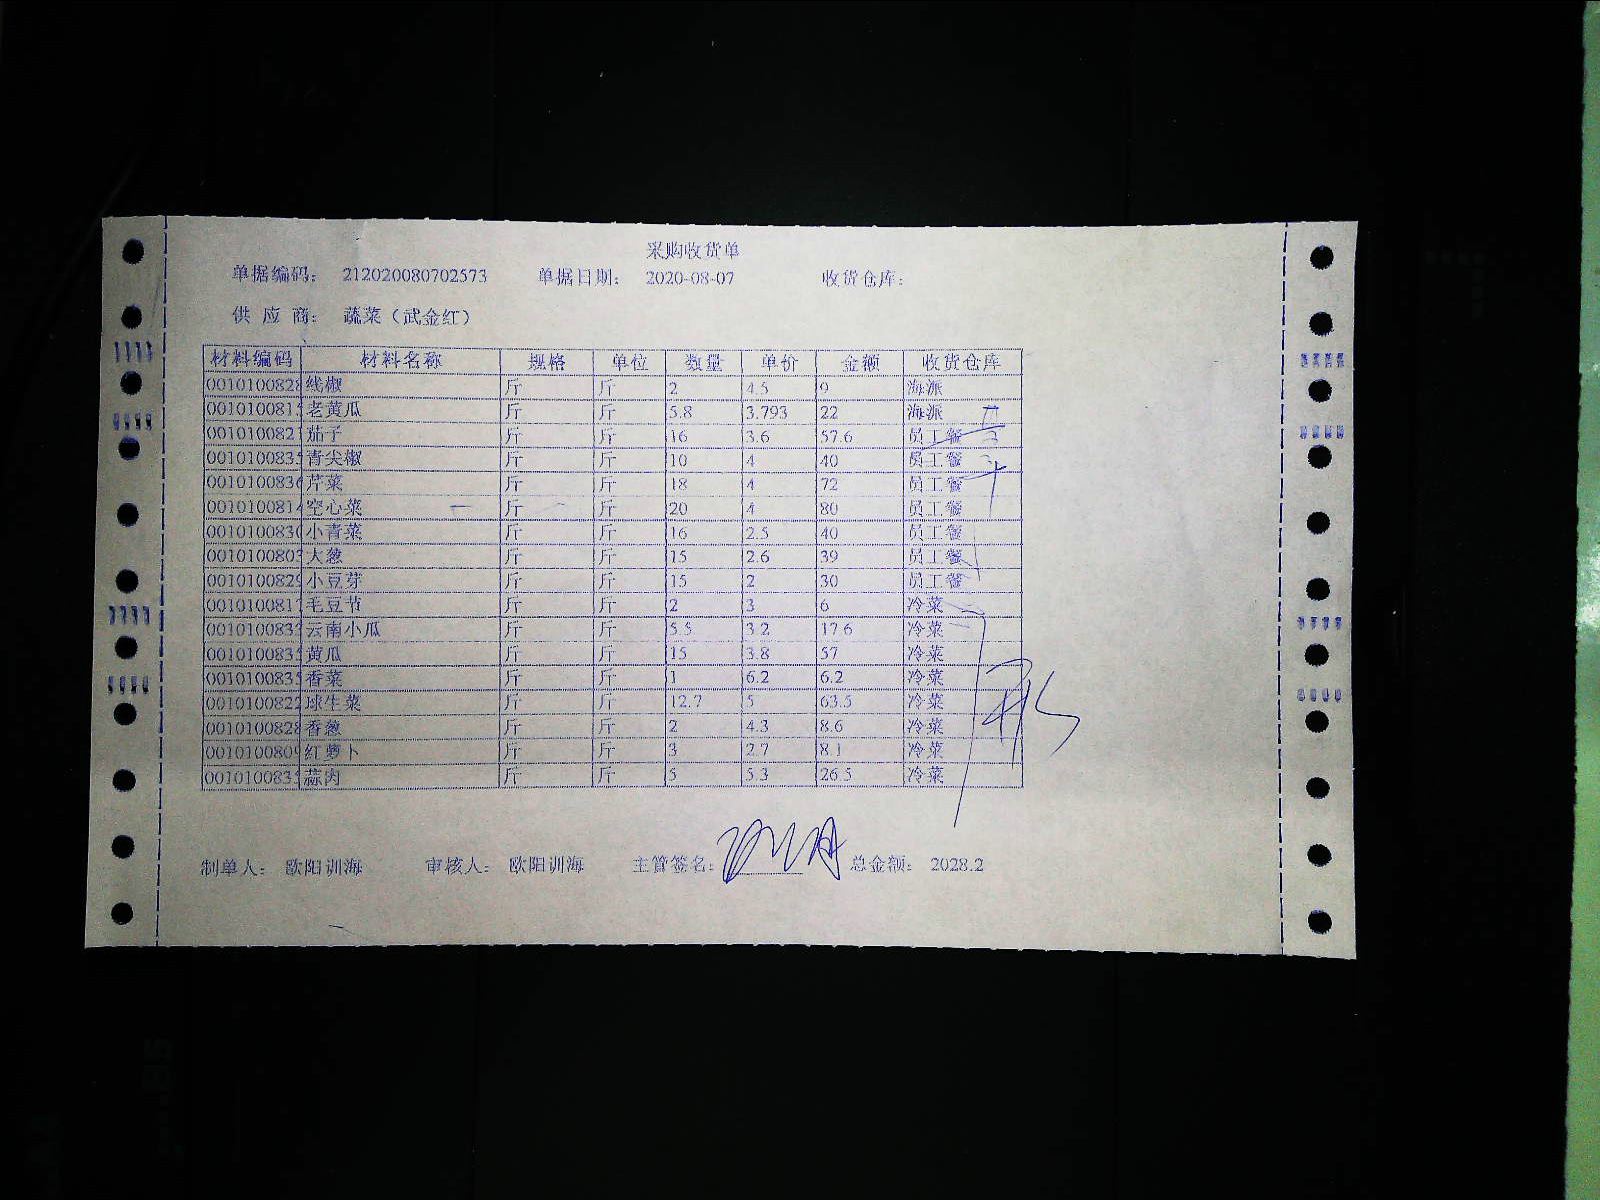 采购收货单
单据编码： 212020080702573 单据日期： 2020-08-07 收货仓库：
供 应 商： 蔬菜（武金红）
材料编码 材料名称 规格 单位 数量 单价 金额 收货仓库
0010100828 线椒 斤 斤 2 4.5 9 海派
001010081 老黄瓜 斤 斤 5.8 3.793 22 海派
001010082 茄子 斤 斤 16 3.6 57.6 员工餐
001010083 青尖椒 斤 斤 10 4 40 员工餐
0010100836 芹菜 斤 斤 18 4 72 员工餐
0010100814 空心菜 斤 斤 20 4 80 员工餐
0010100830 小青菜 斤 斤 16 2.5 40 员工餐
001010080 大葱 斤 斤 15 2.6 39 员工餐
0010100829 小豆芽 斤 斤 15 2 30 员工餐
0010100817 毛豆节 斤 斤 2 3 6 冷菜
001010083 云南小瓜 斤 斤 5.5 3.2 17.6 冷菜
001010083 黄瓜 斤 斤 15 3.8 57 冷菜
001010083 香菜 斤 斤 1 6.2 6.2 冷菜
0010100822 球生菜 斤 斤 12.7 5 63.5 冷菜
0010100828 香葱 斤 斤 2 4.3 8.6 冷菜
001010080 红萝卜 斤 斤 3 2.7 8.1 冷菜
001010083 蒜肉 斤 斤 5 5.3 26.5 冷菜
制单人： 欧阳训海 审核人： 欧阳训海 主管签名： 总金额： 2028.2